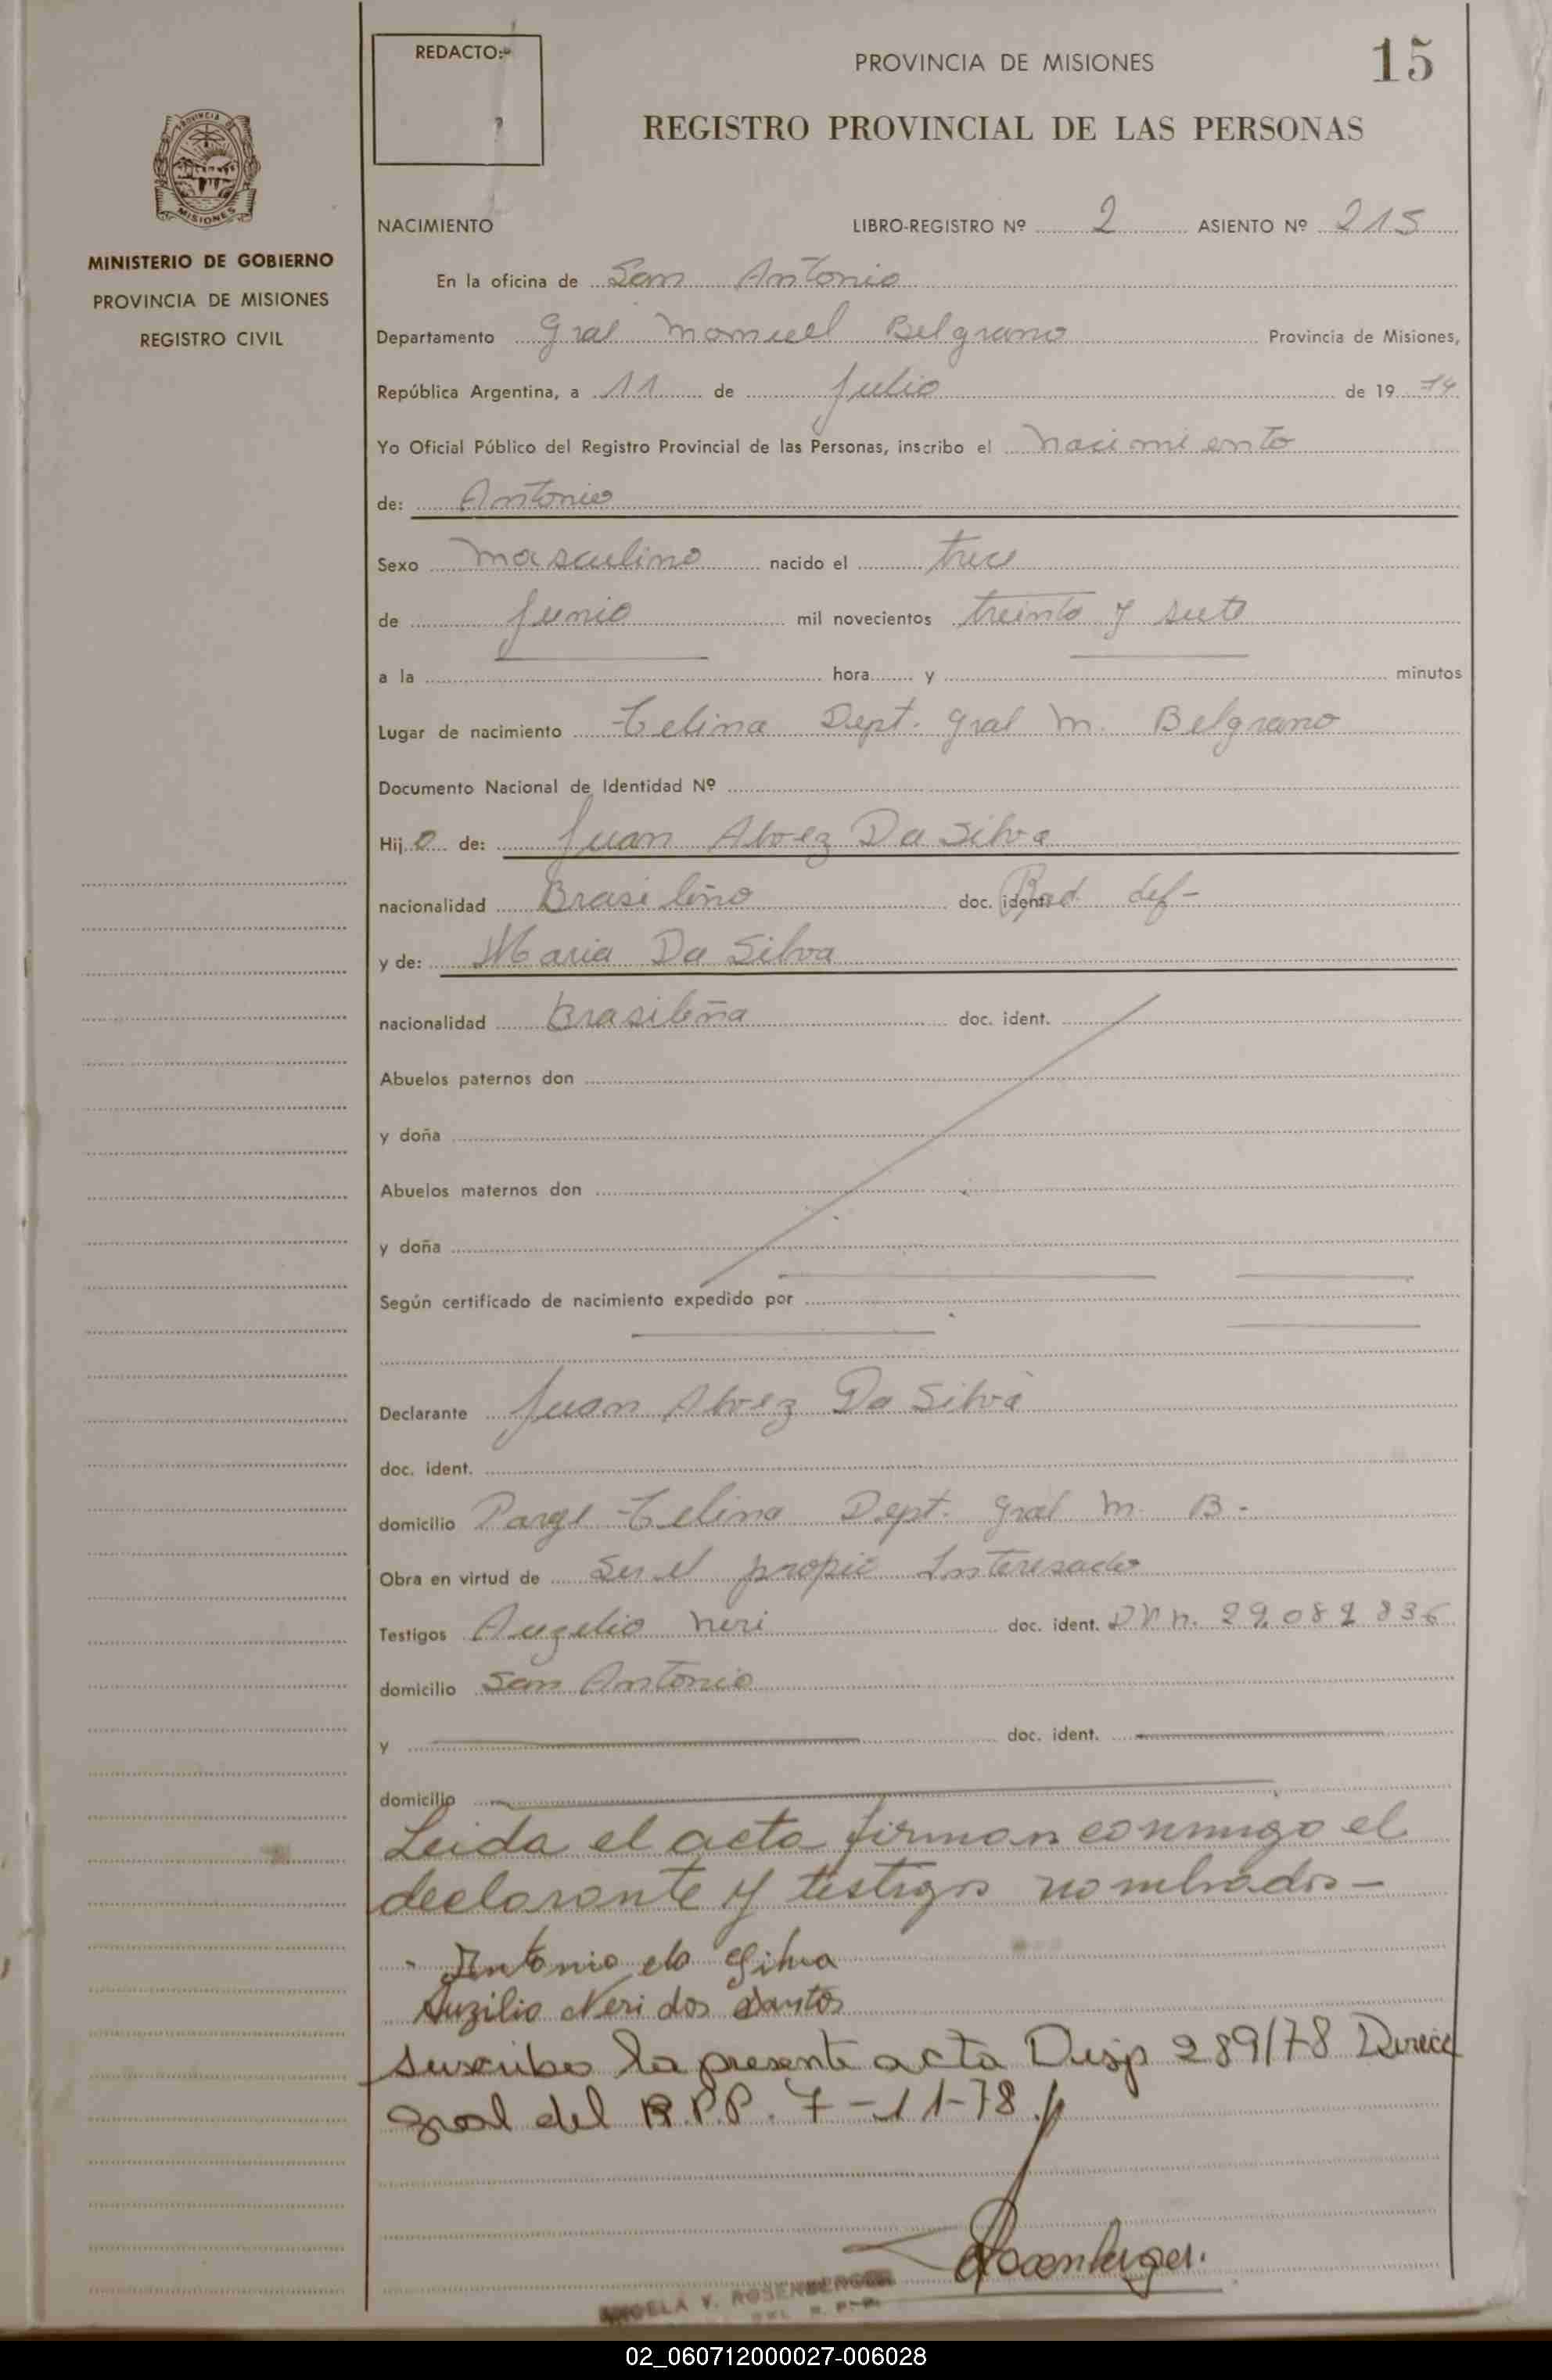 15
REDACTO:
PROVINCIA DE MISIONES
REGISTRO PROVINCIAL DE LAS PERSONAS
PROVINCIA DE MISIONES
MINISTERIO DE GOBIERNO
PROVINCIA DE MISIONES
REGISTRO CIVIL
NACIMIENTO LIBRO-REGISTRO Nº 2 ASIENTO Nº 215
En la oficina de San Antonio
Departamento Gral Manuel Belgrano Provincia de Misiones,
República Argentina, a 11 de Julio de 19 74
Yo Oficial Público del Registro Provincial de las Personas, inscribo el nacimiento
de: Antonio
Sexo masculino nacido el trece
de Junio mil novecientos treinta y siete
a la hora y minutos
Lugar de nacimiento Celina Dept. Gral M. Belgrano
Documento Nacional de Identidad Nº
Hijo de: Juan Alvez Da Silva
nacionalidad Brasileño doc. ident. def-
y de: Maria Da Silva
nacionalidad Brasileña doc. ident.
Abuelos paternos don
y doña
Abuelos maternos don
y doña
Según certificado de nacimiento expedido por
Declarante Juan Alvez Da Silva
doc. ident.
domicilio Parge Celina Dept. Gral M. B.
Obra en virtud de Ser el propio Interesado
Testigos Auzelio Neri doc. ident.
domicilio San Antonio
y doc. ident.
domicilio
Leida el acta firman conmigo el
declarante y testigos nombrados-
Antonio da Silva
Auzilio Neri dos Santos
suscribo la presente acta Disp 289/78 Direcc
gral del R.P.P. 7-11-78
Rosenberger.
ANGELA V. ROSENBERGER
02_060712000027-006028